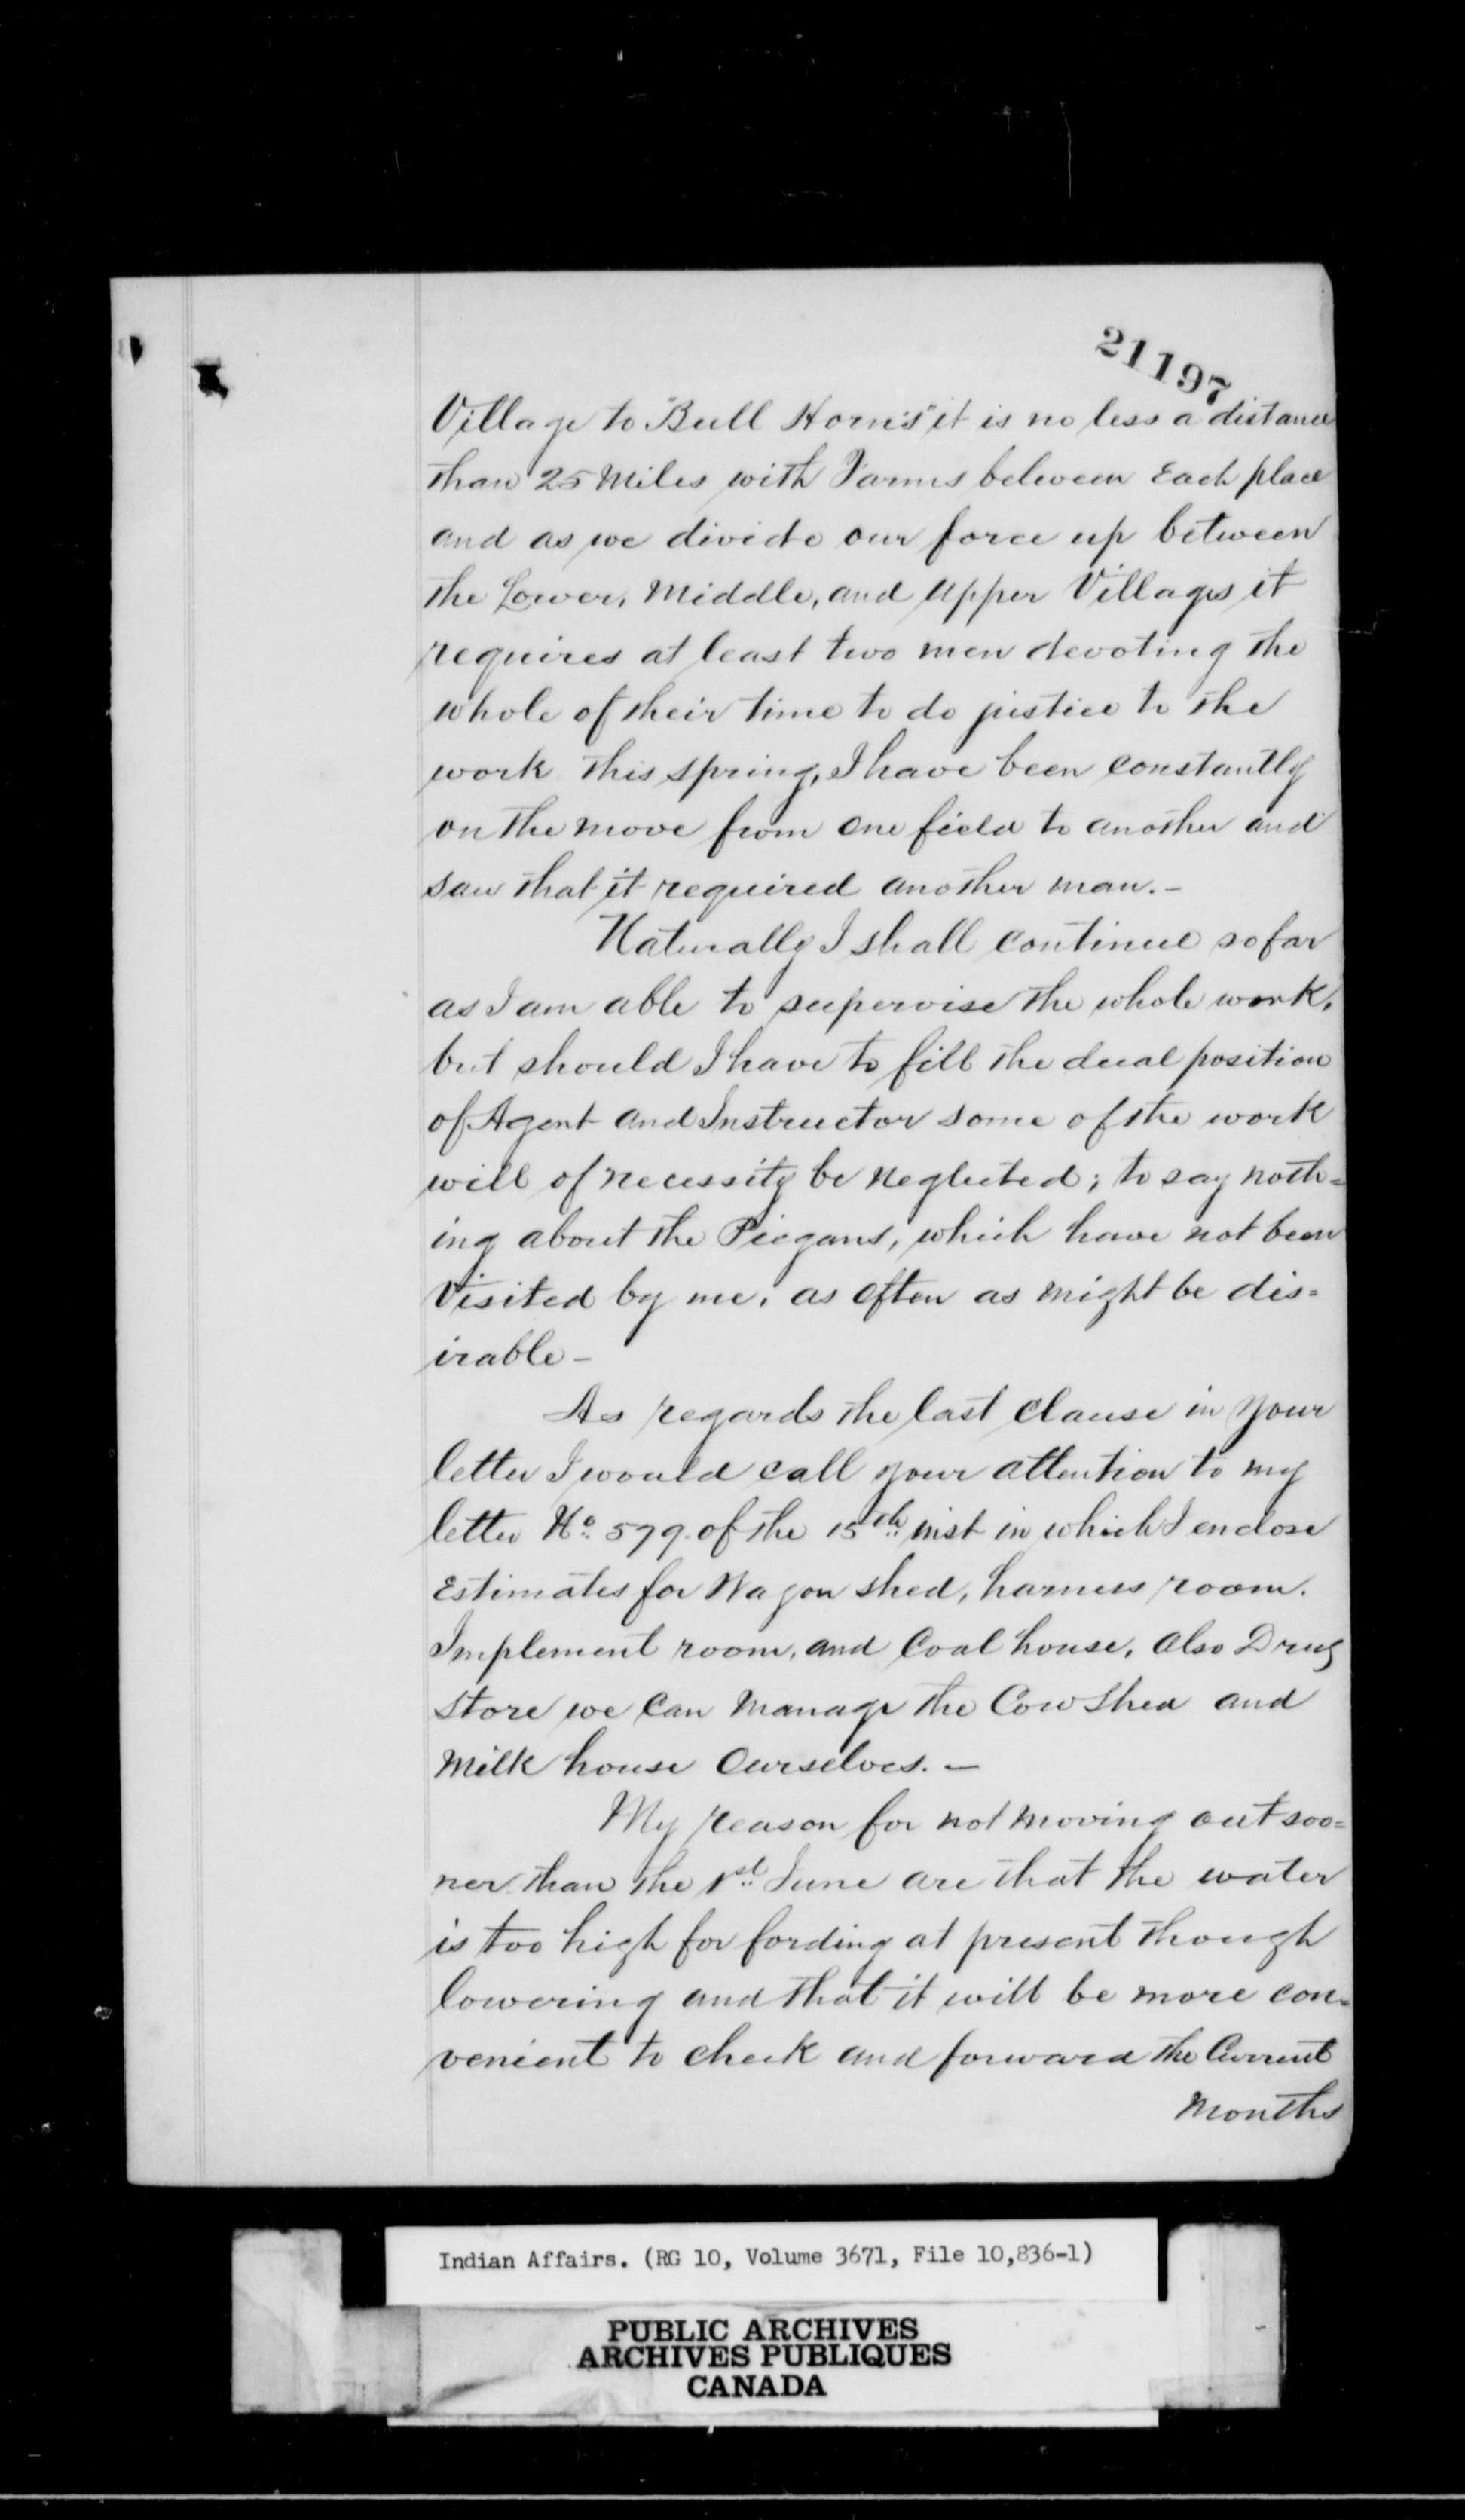 21197
Village to "Bull Horn's" it is no less a distance
than 25 Miles with Farms between Each place
and as we divide our force up between
the Lower, Middle, and Upper Villages it
requires at least two men devoting the
whole of their time to do justice to the
work this spring, I have been constantly
on the move from one field to another and
saw that it required another man. -
Naturally I shall continue so far
as I am able to supervise the whole work,
but should I have to fill the dual position
of Agent and Instructor some of the work
will of necessity be neglected; to say noth=
ing about the Piegans, which have not been
Visited by me, as often as might be dis=
irable -
As regards the last clause in your
letter I would call your attention to my
letter No. 579. of the 15th inst in which I enclose
Estimates for Wagon shed, harness room.
Implement room, and Coal house, also Drug
store we can manage the Cow Shed and
Milk house Ourselves. -
My reason for not moving out soo=
ner than the 1st June are that the water
is too high for fording at present though
lowering and that it will be more con=
venient to check and forward the Current
Months
Indian Affairs. (RG 10, Volume 3671, File 10,836-1)
PUBLIC ARCHIVES
ARCHIVES PUBLIQUES
CANADA